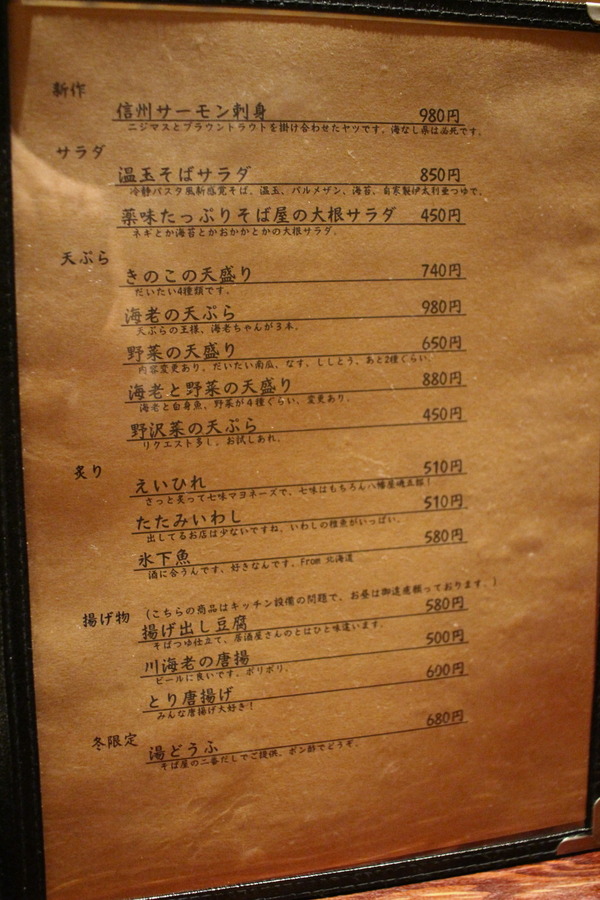 新作
信州サーモン刺身 980円
ニジマスとブラウントラウトを掛け合わせたヤツです。海なし県は必死です。
サラダ
温玉そばサラダ 850円
冷静パスタ風新感覚そば。温玉、パルメザン、海苔、自家製伊太利亜つゆで。
薬味たっぷりそば屋の大根サラダ 450円
ネギとか海苔とかおかかとかの大根サラダ。
天ぷら
きのこの天盛り 740円
だいたい4種類です。
海老の天ぷら 980円
天ぷらの王様、海老ちゃんが3本。
野菜の天盛り 650円
内容変更あり。だいたい南瓜、なす、ししとう、あと2種ぐらい。
海老と野菜の天盛り 880円
海老と白身魚、野菜が4種ぐらい、変更あり。
野沢菜の天ぷら 450円
リクエスト多し。お試しあれ。
炙り
えいひれ 510円
さっと炙って七味マヨネーズで、七味はもちろん八幡屋磯五郎!
たたみいわし 510円
出してるお店は少ないですね、いわしの稚魚がいっぱい。
氷下魚 580円
酒に合うんです、好きなんです。From 北海道
揚げ物 (こちらの商品はキッチン設備の問題で、お昼は御遠慮願っております。)
揚げ出し豆腐 580円
そばつゆ仕立て、居酒屋さんのとはひと味違います。
川海老の唐揚 500円
ビールに良いです。ポリポリ。
とり唐揚げ 600円
みんな唐揚げ大好き!
冬限定
湯どうふ 680円
そば屋の二番だしでご提供、ポン酢でどうぞ。